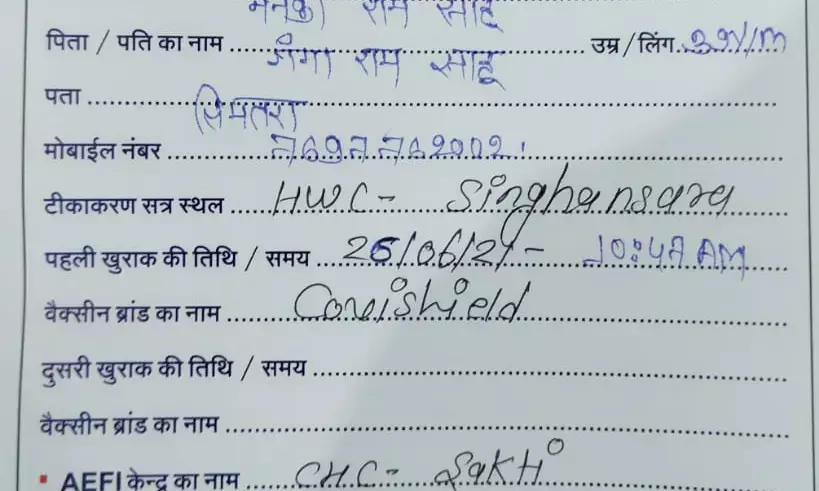 राम साहू
पिता / पति का नाम ..... गंगा राम साहू ..... उम्र / लिंग..39Y/M
पता ..... सिमतरा .....
मोबाईल नंबर ..... 7697762002 .....
टीकाकरण सत्र स्थल ..... HWC- Singhansara
पहली खुराक की तिथि / समय ..... 26/06/21 - 10:47 AM
वैक्सीन ब्रांड का नाम ..... Covishield .....
दुसरी खुराक की तिथि / समय .....
वैक्सीन ब्रांड का नाम .....
▪ AEFI केन्द्र का नाम ..... CHC- Sakti .....